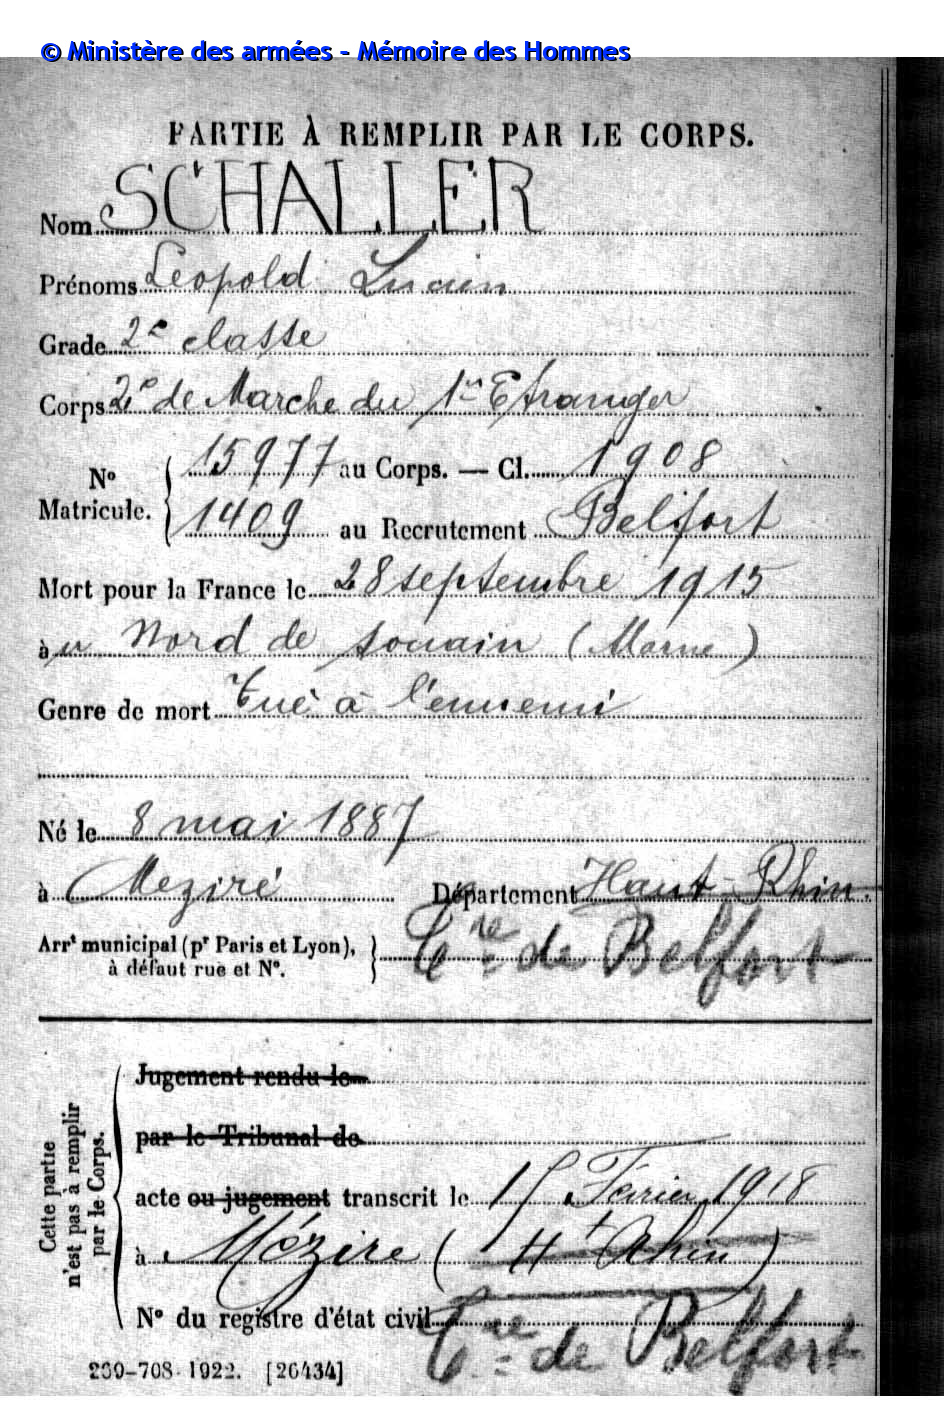 © Ministère des armées - Mémoire des Hommes
PARTIE À REMPLIR PAR LE CORPS.
Nom SCHALLER
Prénoms Leopold Lucien
Grade 2e classe
Corps 2e de Marche du 1er Etranger
No Matricule. 15977 au Corps. — Cl. 1908
1409 au Recrutement Belfort
Mort pour la France le 28 septembre 1915
à au Nord de Souain (Marne)
Genre de mort Tué à l'ennemi
Né le 8 mai 1887
à Meziré Département Haut-Rhin.
Arrt municipal (pr Paris et Lyon), à défaut rue et No. Tre de Belfort
Cette partie n'est pas à remplir par le Corps.
Jugement rendu le
par le Tribunal de
acte ou jugement transcrit le 15 Février 1918
à Mézire (Ht Rhin)
No du registre d'état civil Tre de Belfort
230-708-1922. [26434]